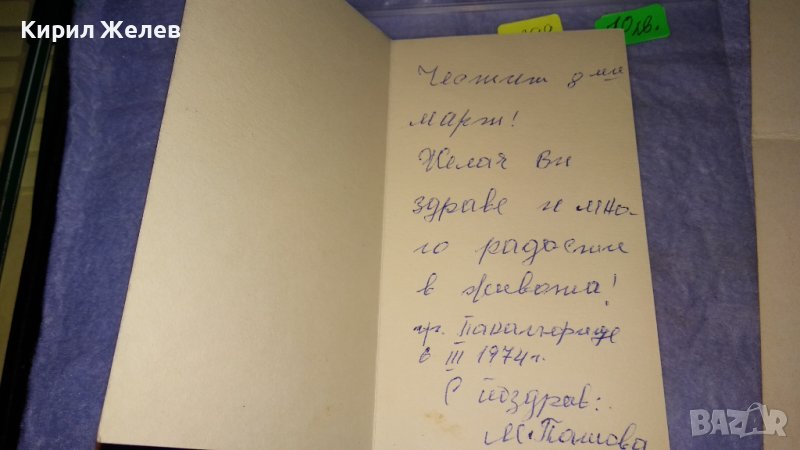 Кирил Желев
10лв.
Честит 8 ми
март!
Желая Ви
здраве и мно-
го радости
в живота!
гр.
6 III 1974 г.
С поздрав:
М. Пашова
BAZAR